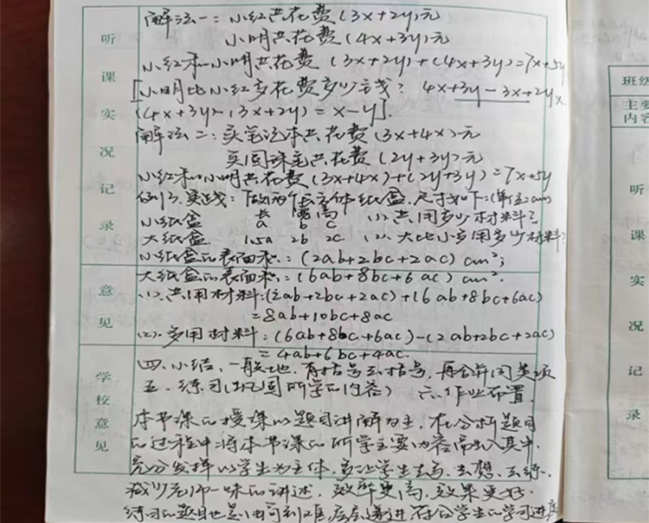 听课实况记录
解法一：小红共花费(3x+2y)元
小明共花费(4x+3y)元
小红和小明共花费(3x+2y)+(4x+3y)=7x+5y
[小明比小红多花费多少钱？ 4x+3y-3x+2y×
(4x+3y)-(3x+2y)=x-y].
解法二：买笔记本共花费(3x+4x)元
买圆珠笔共花费(2y+3y)元
小红和小明共花费(3x+4x)+(2y+3y)=7x+5y
例 做两个长方体纸盒.尺寸如下:(单位:cm
长 宽 高
小纸盒 a b c (1).共用多少材料?
大纸盒 1.5a 2b 2c (2).大比小多用多少材料?
小纸盒的表面积:(2ab+2bc+2ac)cm²;
大纸盒的表面积:(6ab+8bc+6ac)cm².
意见
(1).共用材料:(2ab+2bc+2ac)+(6ab+8bc+6ac)
=8ab+10bc+8ac
(2).多用材料:(6ab+8bc+6ac)-(2ab+2bc+2ac)
=4ab+6bc+4ac.
学校意见
四.小结:一般地,有括号去括号,再合并同类项
五.练习(巩固所学的内容) 六.作业布置
本节课的授课以题目讲解为主,在分析题目
的过程中将本节课的所学主要内容 其中.
充分发挥以学生为主体,多让学生去写,去想,去练.
减少 一味的讲述,效率更高,效果更好.
练习的题目也是由 到难层层递进符合学生的学习进度
班级
主要内容
听课实况记录